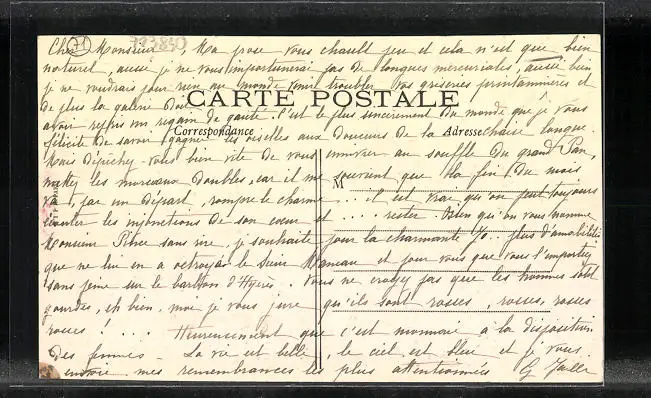 Cher Monsieur, Ma prose vous chault peu et cela n'est que bien
naturel, aussi je ne vous importunerai pas de longues mercuriales, aussi bien
je ne voudrais pour rien au monde venir troubler vos griseries printannières et
de plus la galerie doit
CARTE POSTALE
avoir repris un regain de gaîté. C'est le plus sincèrement du monde que je vous
Correspondance
Adresse
félicite de savoir gagner les oiselles aux douceurs de la chaise longue.
Mais dépêchez-vous bien vite de vous enivrer au souffle du grand Pan,
mettez les morceaux doubles, car il me souvient que la fin du mois
M
va, par un départ, rompre le charme .... il est vrai qu'on peut toujours
écouter les injonctions de son cœur et .... rester. Bien qu'on vous nomme
Monsieur sans rire, je souhaite pour la charmante plus d'amabilité
que ne lui en a octroyée le Sieur et pour vous que vous l'emportiez
sans peine sur le d'Hyères. Vous ne croyez pas que les hommes sont
gourdes, eh bien, moi je vous jure qu'ils sont rosses, rosses, rosses
rosses ! .... Heureusement que c'est monnaie à la disposition
des femmes - La vie est belle, le ciel est bleu et je vous
envoie mes remembrances les plus attentionnées G.